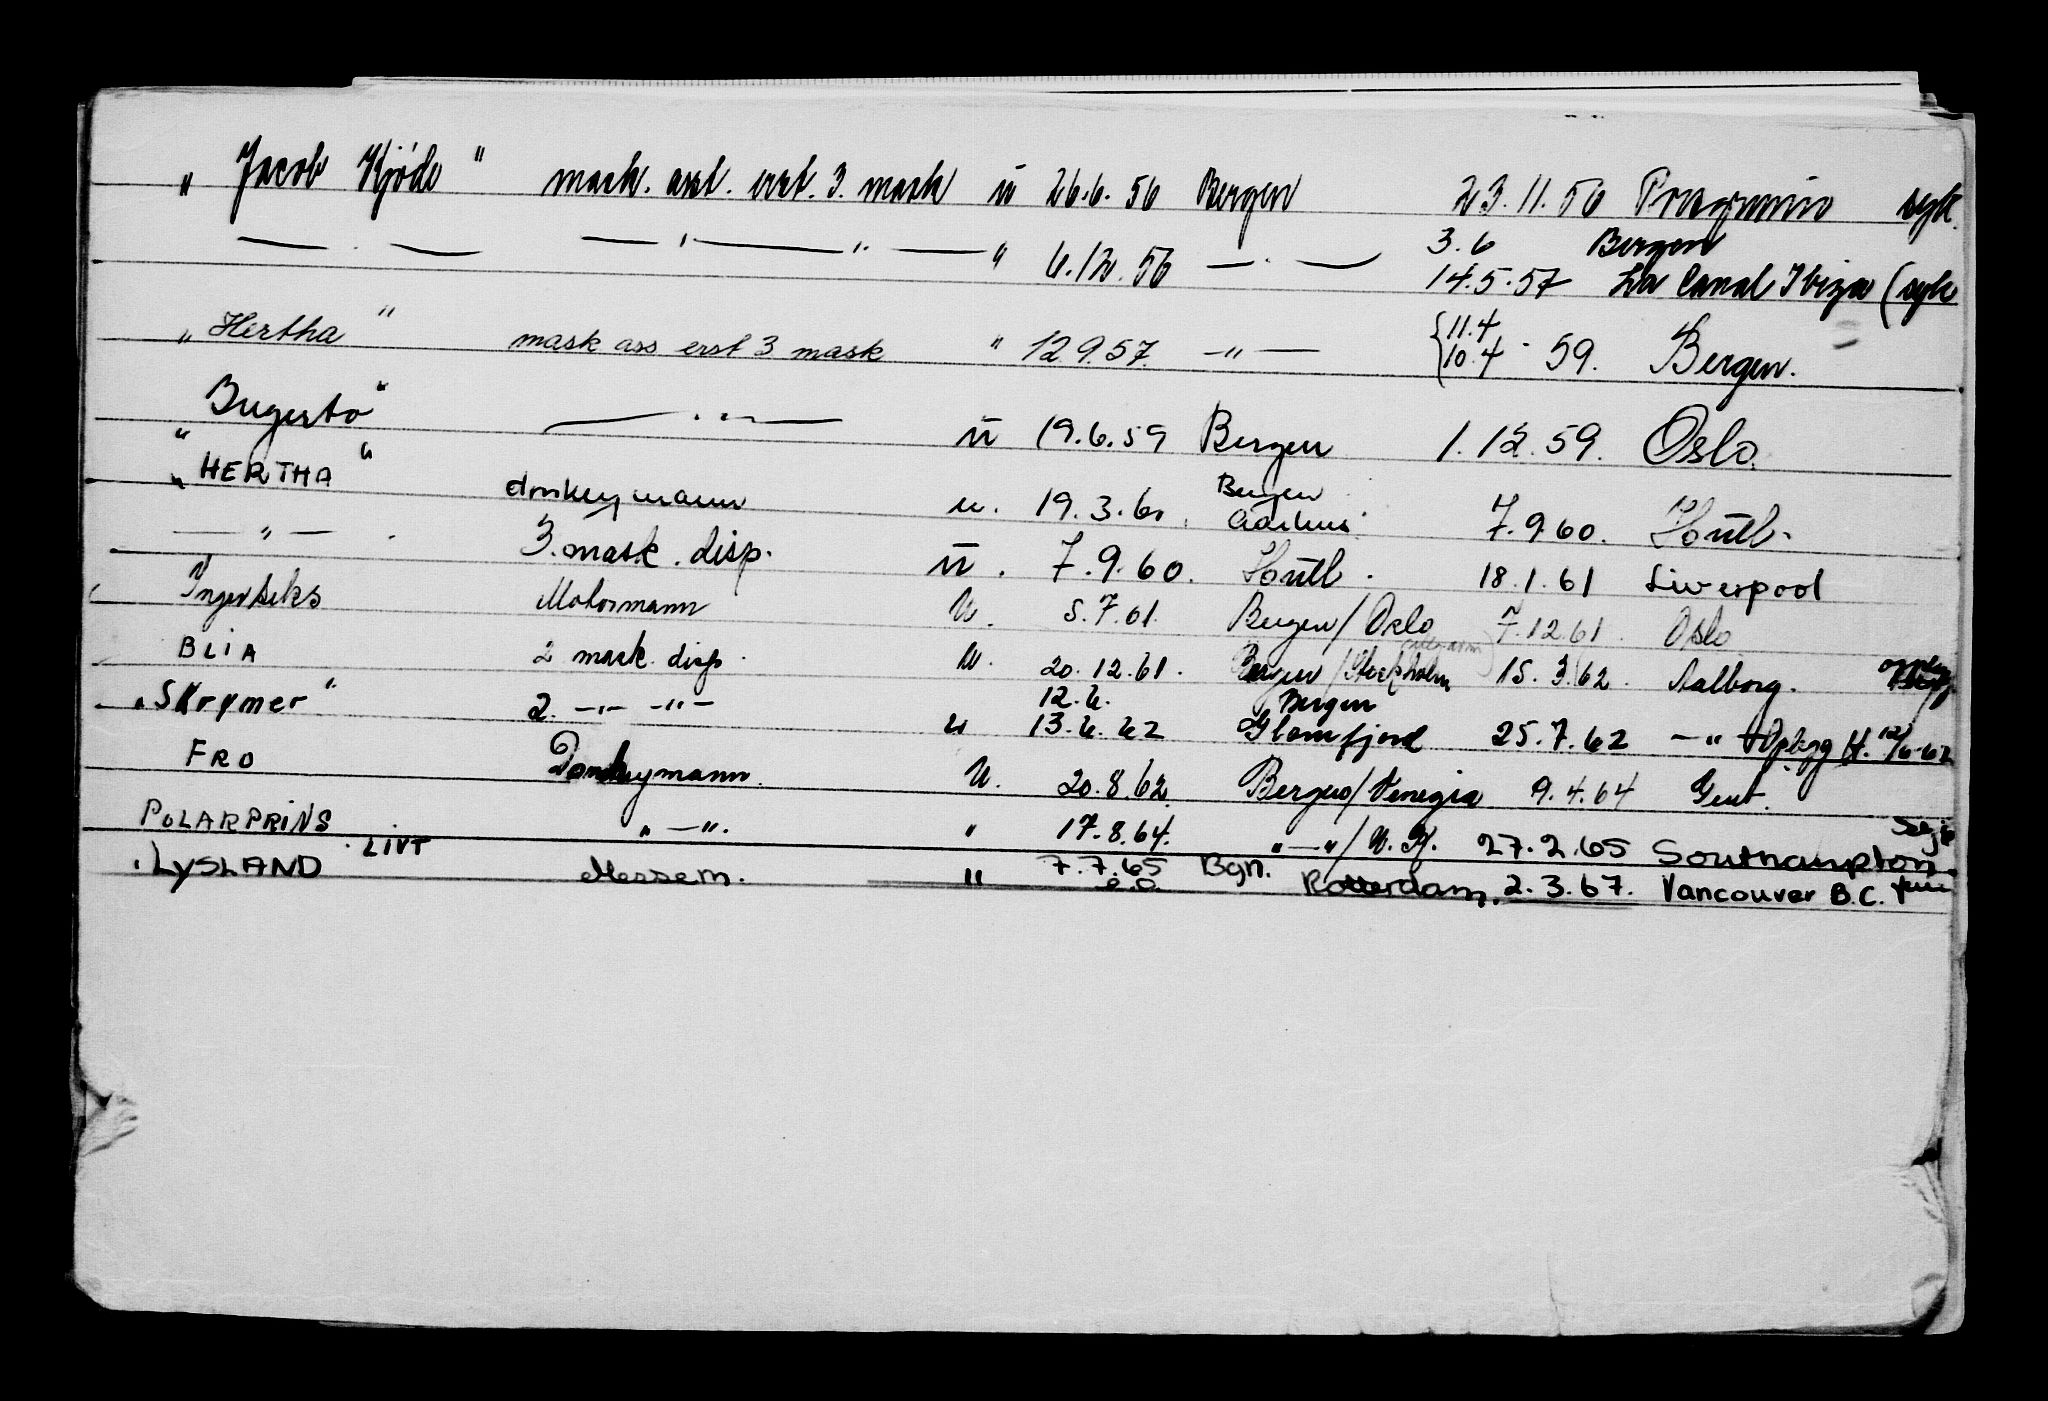 „ Jacob Kjöde " mask. asst. erst. 3. mask ū 26.6.56 Bergen 23.11.56 syk.
— . — — " — " — " 6.12.56 — . — 3.6 Bergen
14.5.57 La Canal Ibiza (syk
„ Hertha " mask ass erst 3 mask " 12.9.57. —"— {11.4 10.4 - 59. Bergen.
„ Ingertö " — . " . — ū 19.6.59 Bergen 1.12.59. Oslo.
„ HERTHA " donkeymann u. 19.3.60. Bergen Aarhus 7.9.60.
— " — . 3. mask. disp. ū. 7.9.60. 18.1.61 Liverpool
Ingerseks Motormann U. 5.7.61. Bergen/Oslo 7.12.61. Oslo
BLIA 2 mask. disp. U. 20.12.61. Bergen/Stockholm 15.3.62. Aalborg.
„ Skrymer " 2. —"— —"— u 12.6. Bergen
13.6.62 Glomfjord 25.7.62 —" Opplegg 12/6-62
FRO Donkeymann. U. 20.8.62. Bergen/Venezia 9.4.64 Gent.
POLARPRINS „ — ". " 17.8.64. „—"/ 27.2.65 Southampton.
. LYSLAND . LIVT Messem. " 7.7.65 Bgn. Rotterdam. 2.3.67. Vancouver B.C.